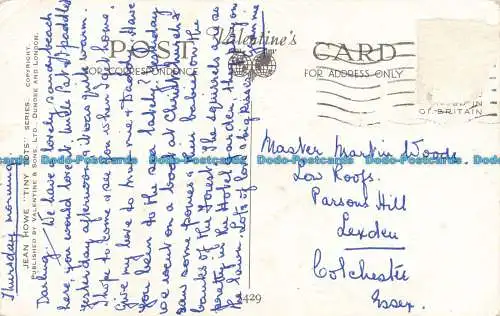 Valentine's
POST CARD
FOR CORRESPONDENCE
FOR ADDRESS ONLY
JEAN HOWE "TINY TOTS" SERIES. COPYRIGHT.
PUBLISHED BY VALENTINE & SONS, LTD., DUNDEE AND LONDON.
Thursday morning
Darling, We have a lovely sandy beach
here, you would love it, Uncle Pat & I paddled
yesterday afternoon, it was quite warm.
I hope to come & see you when I get home.
Give my love to Mummie & Daddy. Have
you been to the sea lately? yesterday
we went on a boat at Christchurch &
saw some ponies & their babies on the
banks of the Forest. The squirrels are so
pretty in the Hotel garden, they on
the lawn. Lots of love & a big kiss
1429
IN
OF BRITAIN
Master Martin Woods
Low Roofs.
Parsons Hill
Lexden
Colchester
Essex.
www.bidstobuy.com